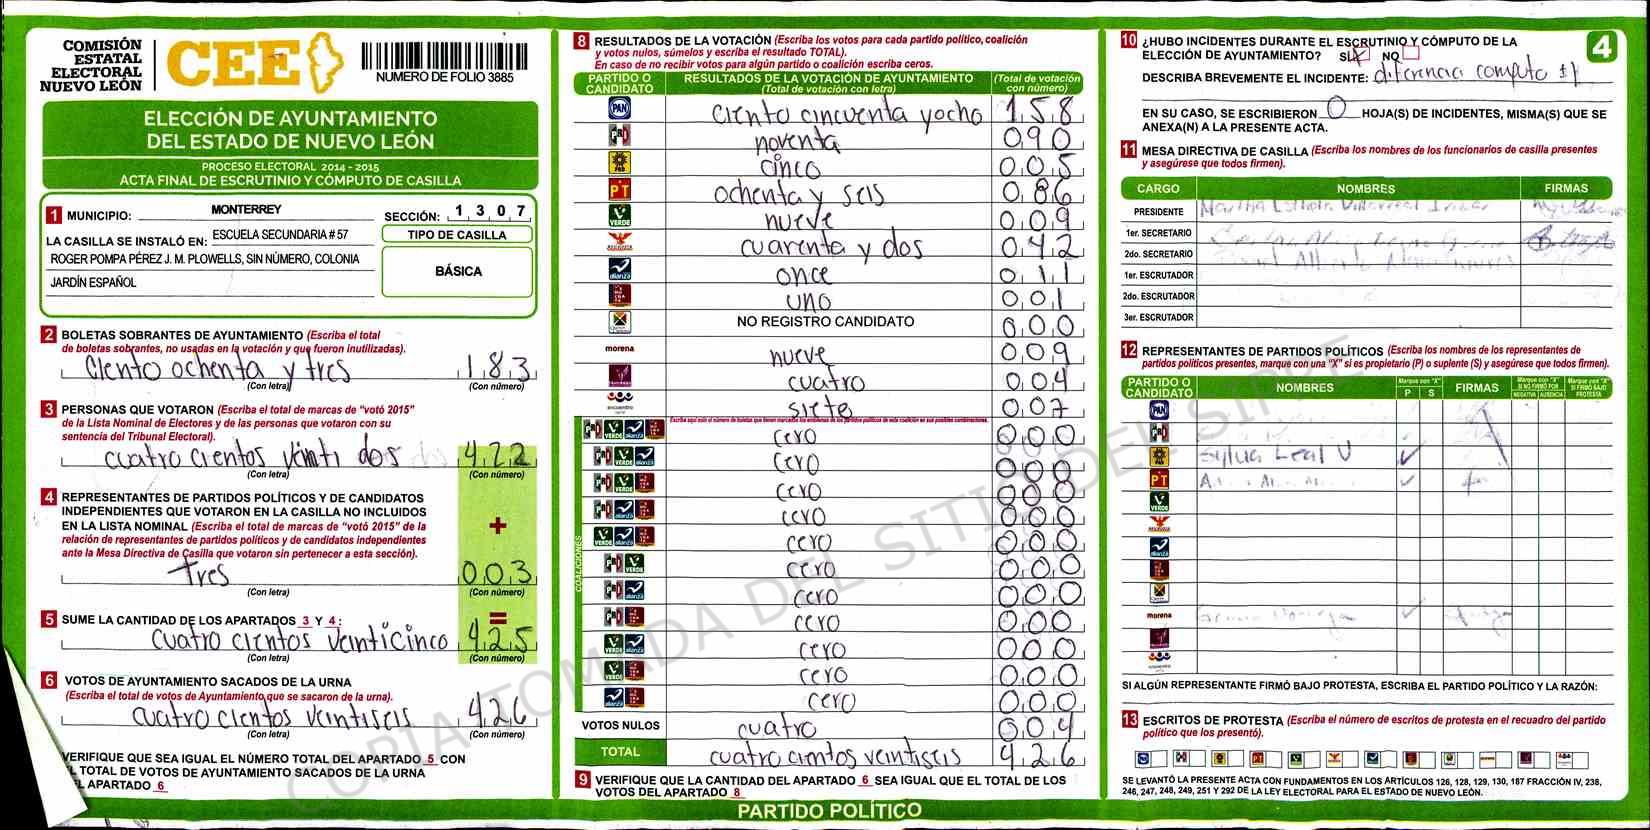 COMISIÓN
ESTATAL
ELECTORAL
NUEVO LEÓN
CEE
NUMERO DE FOLIO 3885
ELECCIÓN DE AYUNTAMIENTO
DEL ESTADO DE NUEVO LEÓN
PROCESO ELECTORAL 2014 - 2015
ACTA FINAL DE ESCRUTINIO Y CÓMPUTO DE CASILLA
1 MUNICIPIO: MONTERREY SECCIÓN: 1 3 0 7
LA CASILLA SE INSTALÓ EN: ESCUELA SECUNDARIA # 57
ROGER POMPA PÉREZ J. M. PLOWELLS, SIN NÚMERO, COLONIA
JARDÍN ESPAÑOL
TIPO DE CASILLA
BÁSICA
2 BOLETAS SOBRANTES DE AYUNTAMIENTO (Escriba el total
de boletas sobrantes, no usadas en la votación y que fueron inutilizadas).
Ciento ochenta y tres 1 8 3
(Con letra) (Con número)
3 PERSONAS QUE VOTARON (Escriba el total de marcas de "votó 2015"
de la Lista Nominal de Electores y de las personas que votaron con su
sentencia del Tribunal Electoral).
cuatro cientos veinti dos 4 2 2
(Con letra) (Con número)
4 REPRESENTANTES DE PARTIDOS POLÍTICOS Y DE CANDIDATOS
INDEPENDIENTES QUE VOTARON EN LA CASILLA NO INCLUIDOS
EN LA LISTA NOMINAL (Escriba el total de marcas de "votó 2015" de la
relación de representantes de partidos políticos y de candidatos independientes
ante la Mesa Directiva de Casilla que votaron sin pertenecer a esta sección).
+
tres 0 0 3
(Con letra) (Con número)
5 SUME LA CANTIDAD DE LOS APARTADOS 3 Y 4: =
cuatro cientos veinticinco 4 2 5
(Con letra) (Con número)
6 VOTOS DE AYUNTAMIENTO SACADOS DE LA URNA
(Escriba el total de votos de Ayuntamiento que se sacaron de la urna).
cuatro cientos veintiseis 4 2 6
(Con letra) (Con número)
VERIFIQUE QUE SEA IGUAL EL NÚMERO TOTAL DEL APARTADO 5 CON
TOTAL DE VOTOS DE AYUNTAMIENTO SACADOS DE LA URNA
APARTADO 6
8 RESULTADOS DE LA VOTACIÓN (Escriba los votos para cada partido político, coalición
y votos nulos, súmelos y escriba el resultado TOTAL).
En caso de no recibir votos para algún partido o coalición escriba ceros.
PARTIDO O CANDIDATO RESULTADOS DE LA VOTACIÓN DE AYUNTAMIENTO (Total de votación con letra) (Total de votación con número)
PAN ciento cincuenta y ocho 1 5 8
PRI noventa 0 9 0
PRD cinco 0 0 5
PT ochenta y seis 0 8 6
VERDE nueve 0 0 9
cuarenta y dos 0 4 2
alianza once 0 1 1
uno 0 0 1
NO REGISTRO CANDIDATO 0 0 0
morena nueve 0 0 9
cuatro 0 0 4
encuentro siete 0 0 7
COALICIONES
cero 0 0 0
cero 0 0 0
cero 0 0 0
cero 0 0 0
cero 0 0 0
cero 0 0 0
cero 0 0 0
cero 0 0 0
cero 0 0 0
cero 0 0 0
cero 0 0 0
VOTOS NULOS cuatro 0 0 4
TOTAL cuatro cientos veintiseis 4 2 6
9 VERIFIQUE QUE LA CANTIDAD DEL APARTADO 6 SEA IGUAL QUE EL TOTAL DE LOS
VOTOS DEL APARTADO 8
PARTIDO POLÍTICO
10 ¿HUBO INCIDENTES DURANTE EL ESCRUTINIO Y CÓMPUTO DE LA
ELECCIÓN DE AYUNTAMIENTO? SÍ NO
4
DESCRIBA BREVEMENTE EL INCIDENTE: diferencia computo ±1
EN SU CASO, SE ESCRIBIERON 0 HOJA(S) DE INCIDENTES, MISMA(S) QUE SE
ANEXA(N) A LA PRESENTE ACTA.
11 MESA DIRECTIVA DE CASILLA (Escriba los nombres de los funcionarios de casilla presentes
y asegúrese que todos firmen).
CARGO NOMBRES FIRMAS
PRESIDENTE Martha Villarreal
1er. SECRETARIO
2do. SECRETARIO Alberto
1er. ESCRUTADOR
2do. ESCRUTADOR
3er. ESCRUTADOR
12 REPRESENTANTES DE PARTIDOS POLÍTICOS (Escriba los nombres de los representantes de
partidos políticos presentes, marque con una "X" si es propietario (P) o suplente (S) y asegúrese que todos firmen).
PARTIDO O CANDIDATO NOMBRES Marque con "X" P S FIRMAS Marque con "X" SI NO FIRMÓ POR NEGATIVA AUSENCIA Marque con "X" SI FIRMÓ BAJO PROTESTA
PAN
PRI
PRD Sylvia Leal V
PT
VERDE
alianza
morena
SI ALGÚN REPRESENTANTE FIRMÓ BAJO PROTESTA, ESCRIBA EL PARTIDO POLÍTICO Y LA RAZÓN:
13 ESCRITOS DE PROTESTA (Escriba el número de escritos de protesta en el recuadro del partido
político que los presentó).
SE LEVANTÓ LA PRESENTE ACTA CON FUNDAMENTOS EN LOS ARTÍCULOS 126, 128, 129, 130, 187 FRACCIÓN IV, 238,
246, 247, 248, 249, 251 Y 292 DE LA LEY ELECTORAL PARA EL ESTADO DE NUEVO LEÓN.
COPIA TOMADA DEL SITIO DEL SIPRE